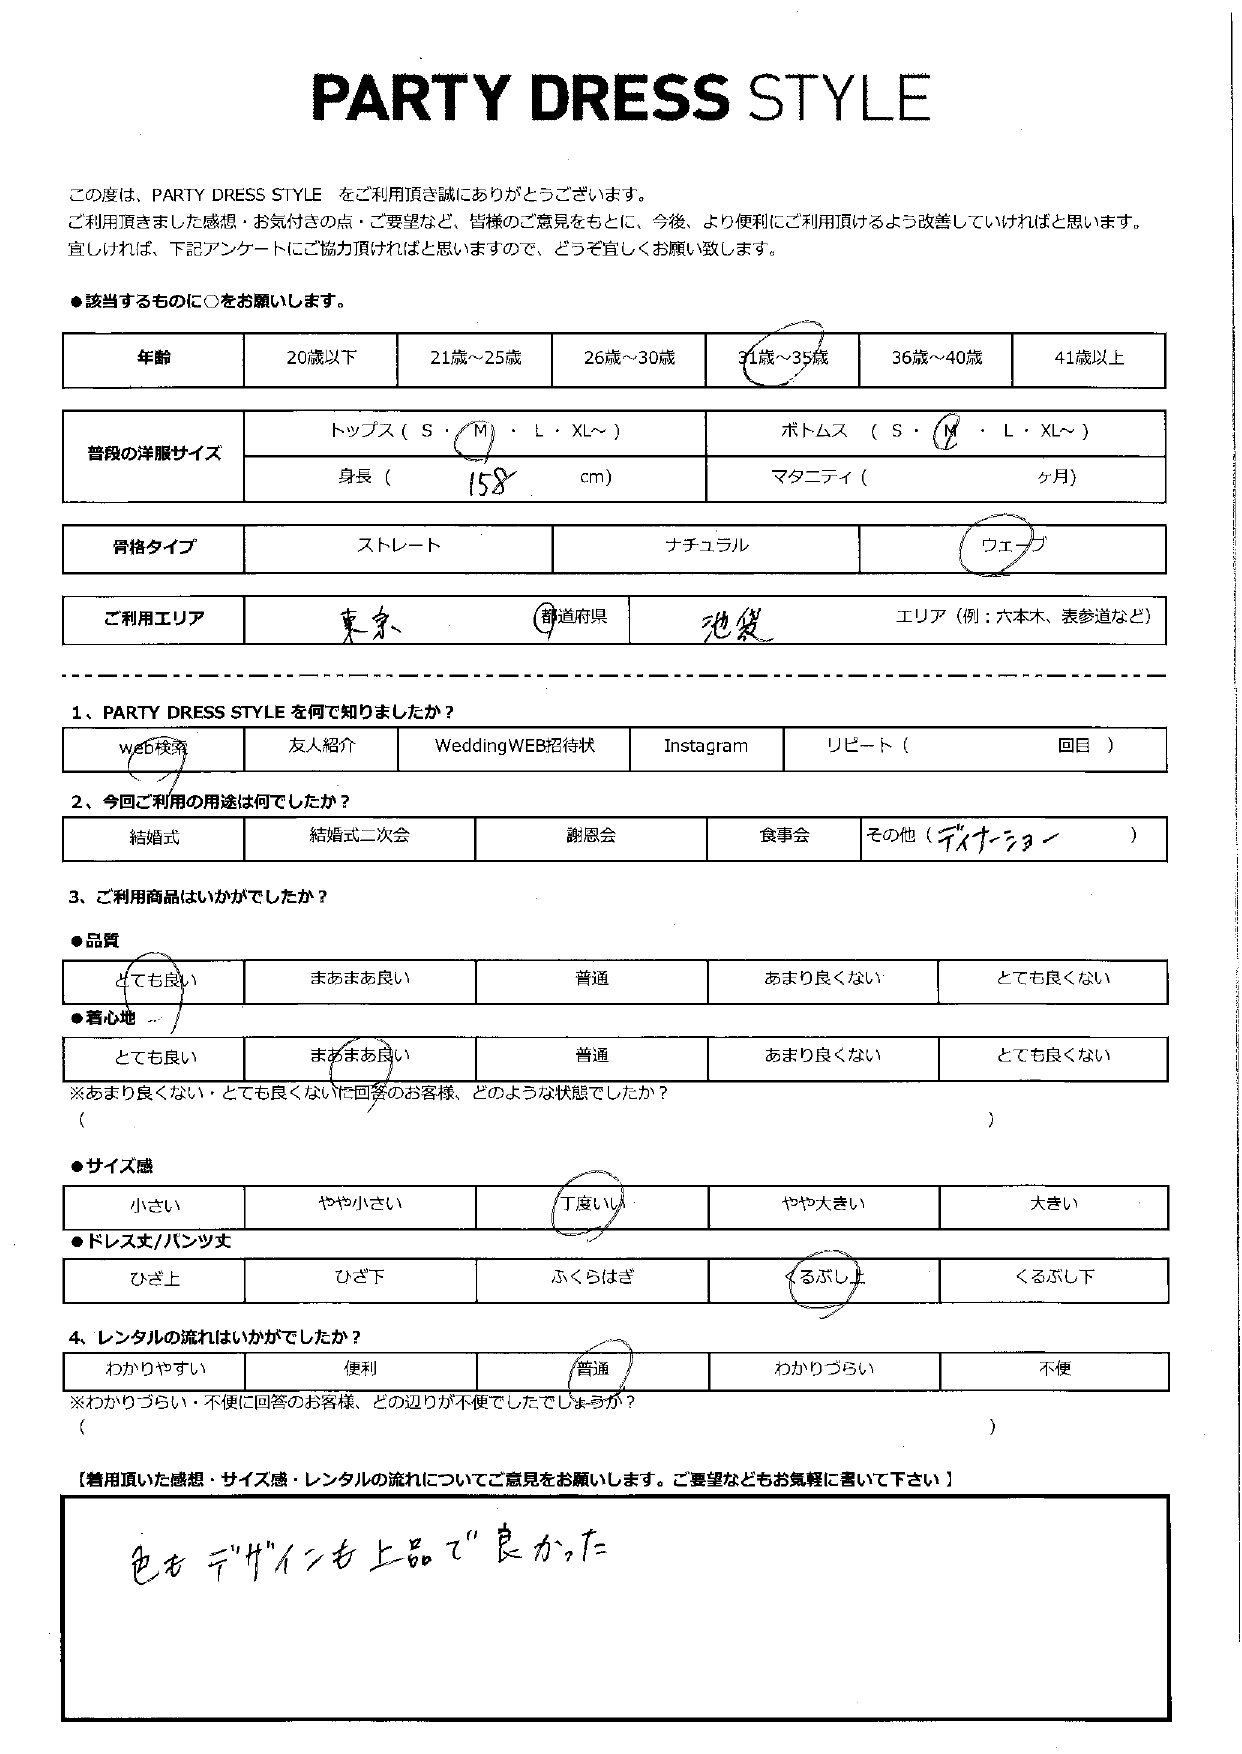 PARTY DRESS STYLE
この度は、PARTY DRESS STYLE をご利用頂き誠にありがとうございます。
ご利用頂きました感想・お気付きの点・ご要望など、皆様のご意見をもとに、今後、より便利にご利用頂けるよう改善していければと思います。
宜しければ、下記アンケートにご協力頂ければと思いますので、どうぞ宜しくお願い致します。
●該当するものに○をお願いします。
年齢 20歳以下 21歳～25歳 26歳～30歳 31歳～35歳 36歳～40歳 41歳以上
普段の洋服サイズ トップス ( S ・ M ・ L ・ XL～ ) ボトムス ( S ・ M ・ L ・ XL～ )
身長 ( 158 cm) マタニティ ( ヶ月)
骨格タイプ ストレート ナチュラル ウェーブ
ご利用エリア 東京 都道府県 池袋 エリア（例：六本木、表参道など）
1、PARTY DRESS STYLE を何で知りましたか？
web検索 友人紹介 WeddingWEB招待状 Instagram リピート ( 回目 )
2、今回ご利用の用途は何でしたか？
結婚式 結婚式二次会 謝恩会 食事会 その他 ( ディナーショー )
3、ご利用商品はいかがでしたか？
●品質
とても良い まあまあ良い 普通 あまり良くない とても良くない
●着心地
とても良い まあまあ良い 普通 あまり良くない とても良くない
※あまり良くない・とても良くないに回答のお客様、どのような状態でしたか？
( )
●サイズ感
小さい やや小さい 丁度いい やや大きい 大きい
●ドレス丈/パンツ丈
ひざ上 ひざ下 ふくらはぎ くるぶし上 くるぶし下
4、レンタルの流れはいかがでしたか？
わかりやすい 便利 普通 わかりづらい 不便
※わかりづらい・不便に回答のお客様、どの辺りが不便でしたでしょうか？
( )
【着用頂いた感想・サイズ感・レンタルの流れについてご意見をお願いします。ご要望などもお気軽に書いて下さい 】
色もデザインも上品で良かった